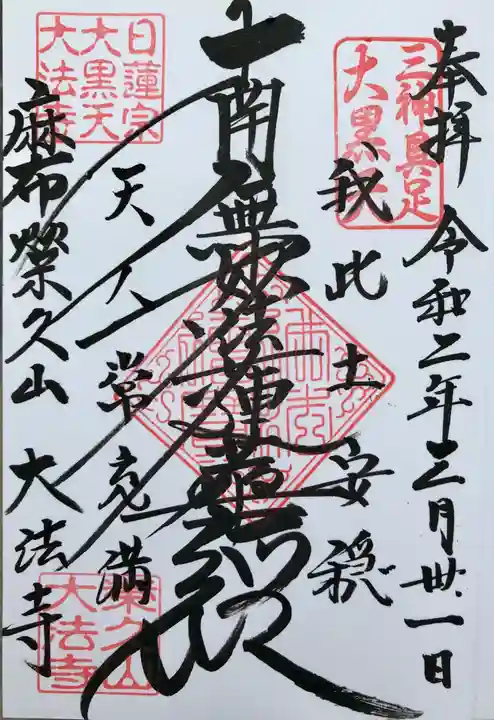 奉拝 令和二年三月卅一日
三神具足
大黒天
我此土安穏
南無妙法蓮華経
天人常充満
日蓮宗
大黒天
大法寺
麻布榮久山 大法寺
榮久山
大法寺